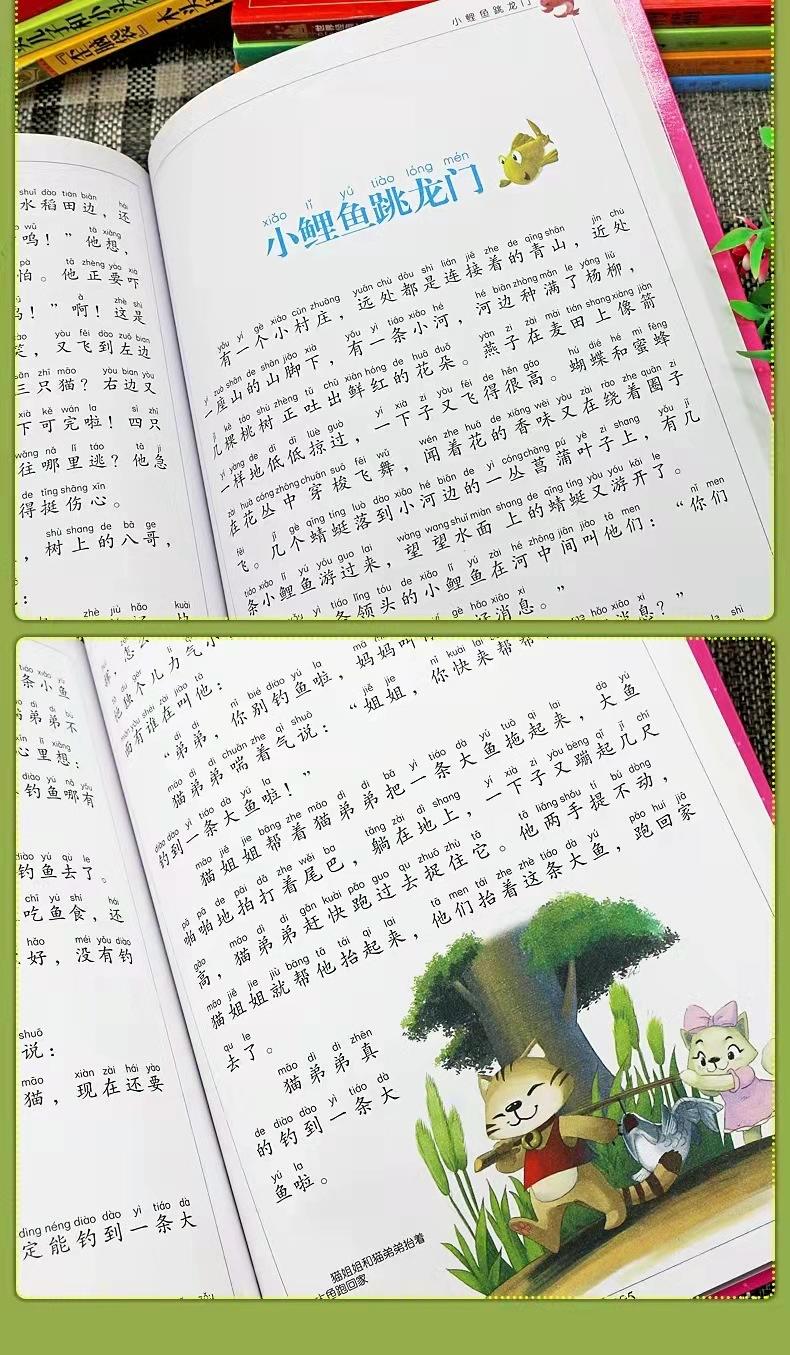 小鲤鱼跳龙门
shuǐ dào tián biān hái
水稻田边，还
呜！”他想，
pà tā zhèng yào xià
怕。他正要吓
啊！这是
yòu fēi dào zuǒ bian
笑，又飞到左边
sān zhī māo yòu bian yòu
三只猫？右边又
xià kě wán la sì zhī
下可完啦！四只
wǎng nǎ lǐ táo tā jí
往哪里逃？他急
de tǐng shāng xīn
得挺伤心。
shù shang de bā ge
，树上的八哥，
zhè jiù hǎo kuài
xiǎo lǐ yú tiào lóng mén
小鲤鱼跳龙门
yǒu yí gè xiǎo cūn zhuāng yuǎn chù dōu shì lián jiē zhe de qīng shān jìn chù
有一个小村庄，远处都是连接着的青山，近处
yí zuò shān de shān jiǎo xià yǒu yì tiáo xiǎo hé hé biān zhòng mǎn le yáng liǔ
一座山的山脚下，有一条小河，河边种满了杨柳，
jǐ kē táo shù zhèng tǔ chū xiān hóng de huā duǒ yàn zi zài mài tián shang xiàng jiàn
几棵桃树正吐出鲜红的花朵。燕子在麦田上像箭
yí yàng de dī dī lüè guò yí xià zi yòu fēi de hěn gāo hú dié hé mì fēng
一样地低低掠过，一下子又飞得很高。蝴蝶和蜜蜂
zài huā cóng zhōng chuān suō fēi wǔ wén zhe huā de xiāng wèi yòu zài rào zhe quān zi
在花丛中穿梭飞舞，闻着花的香味又在绕着圈子
fēi jǐ gè qīng tíng luò dào xiǎo hé biān de yì cóng chāng pú yè zi shang yǒu jǐ
飞。几个蜻蜓落到小河边的一丛菖蒲叶子上，有几
tiáo xiǎo lǐ yú yóu guo lai wàng wang shuǐ miàn shang de qīng tíng yòu yóu kāi le nǐ men
条小鲤鱼游过来，望望水面上的蜻蜓又游开了。“你们
yì tiáo lǐng tóu de xiǎo lǐ yú zài hé zhōng jiān jiào tā men
条领头的小鲤鱼在河中间叫他们：
好消息。”
消息？”
tiáo xiǎo yú
条小鱼
弟弟不
xīn li xiǎng
心里想：
diào yú nǎ yǒu
钓鱼哪有
diào yú qù le
钓鱼去了。
chī yú shí hái
吃鱼食，还
hǎo méi yǒu diào
好，没有钓
shuō
说：
māo xiàn zài hái yào
猫，现在还要
dìng néng diào dào yì tiáo dà
定能钓到一条大
面有谁在叫他：
dì di nǐ bié diào yú la
“弟弟，你别钓鱼啦，妈妈叫你
māo dì di chuǎn zhe qì shuō jiě jie nǐ kuài lai bāng
猫弟弟喘着气说：“姐姐，你快来帮帮
diào dào yì tiáo dà yú la
钓到一条大鱼啦！”
māo jiě jie bāng zhe māo dì di bǎ yì tiáo dà yú tuō qǐ lai dà yú
猫姐姐帮着猫弟弟把一条大鱼拖起来，大鱼
pā pā de pāi dǎ zhe wěi ba tǎng zài dì shang yí xià zi yòu bèng qǐ jǐ chǐ
啪啪地拍打着尾巴，躺在地上，一下子又蹦起几尺
gāo māo dì di gǎn kuài pǎo guo qu zhuō zhù tā tā liǎng shǒu tí bú dòng
高，猫弟弟赶快跑过去捉住它。他两手提不动，
māo jiě jie jiù bāng tā tái qǐ lai tā men tái zhe zhè tiáo dà yú pǎo huí jiā
猫姐姐就帮他抬起来，他们抬着这条大鱼，跑回家
qu le
去了。
māo dì di zhēn
猫弟弟真
de diào dào yì tiáo dà
的钓到一条大
yú la
鱼啦。
猫姐姐和猫弟弟抬着
大鱼跑回家